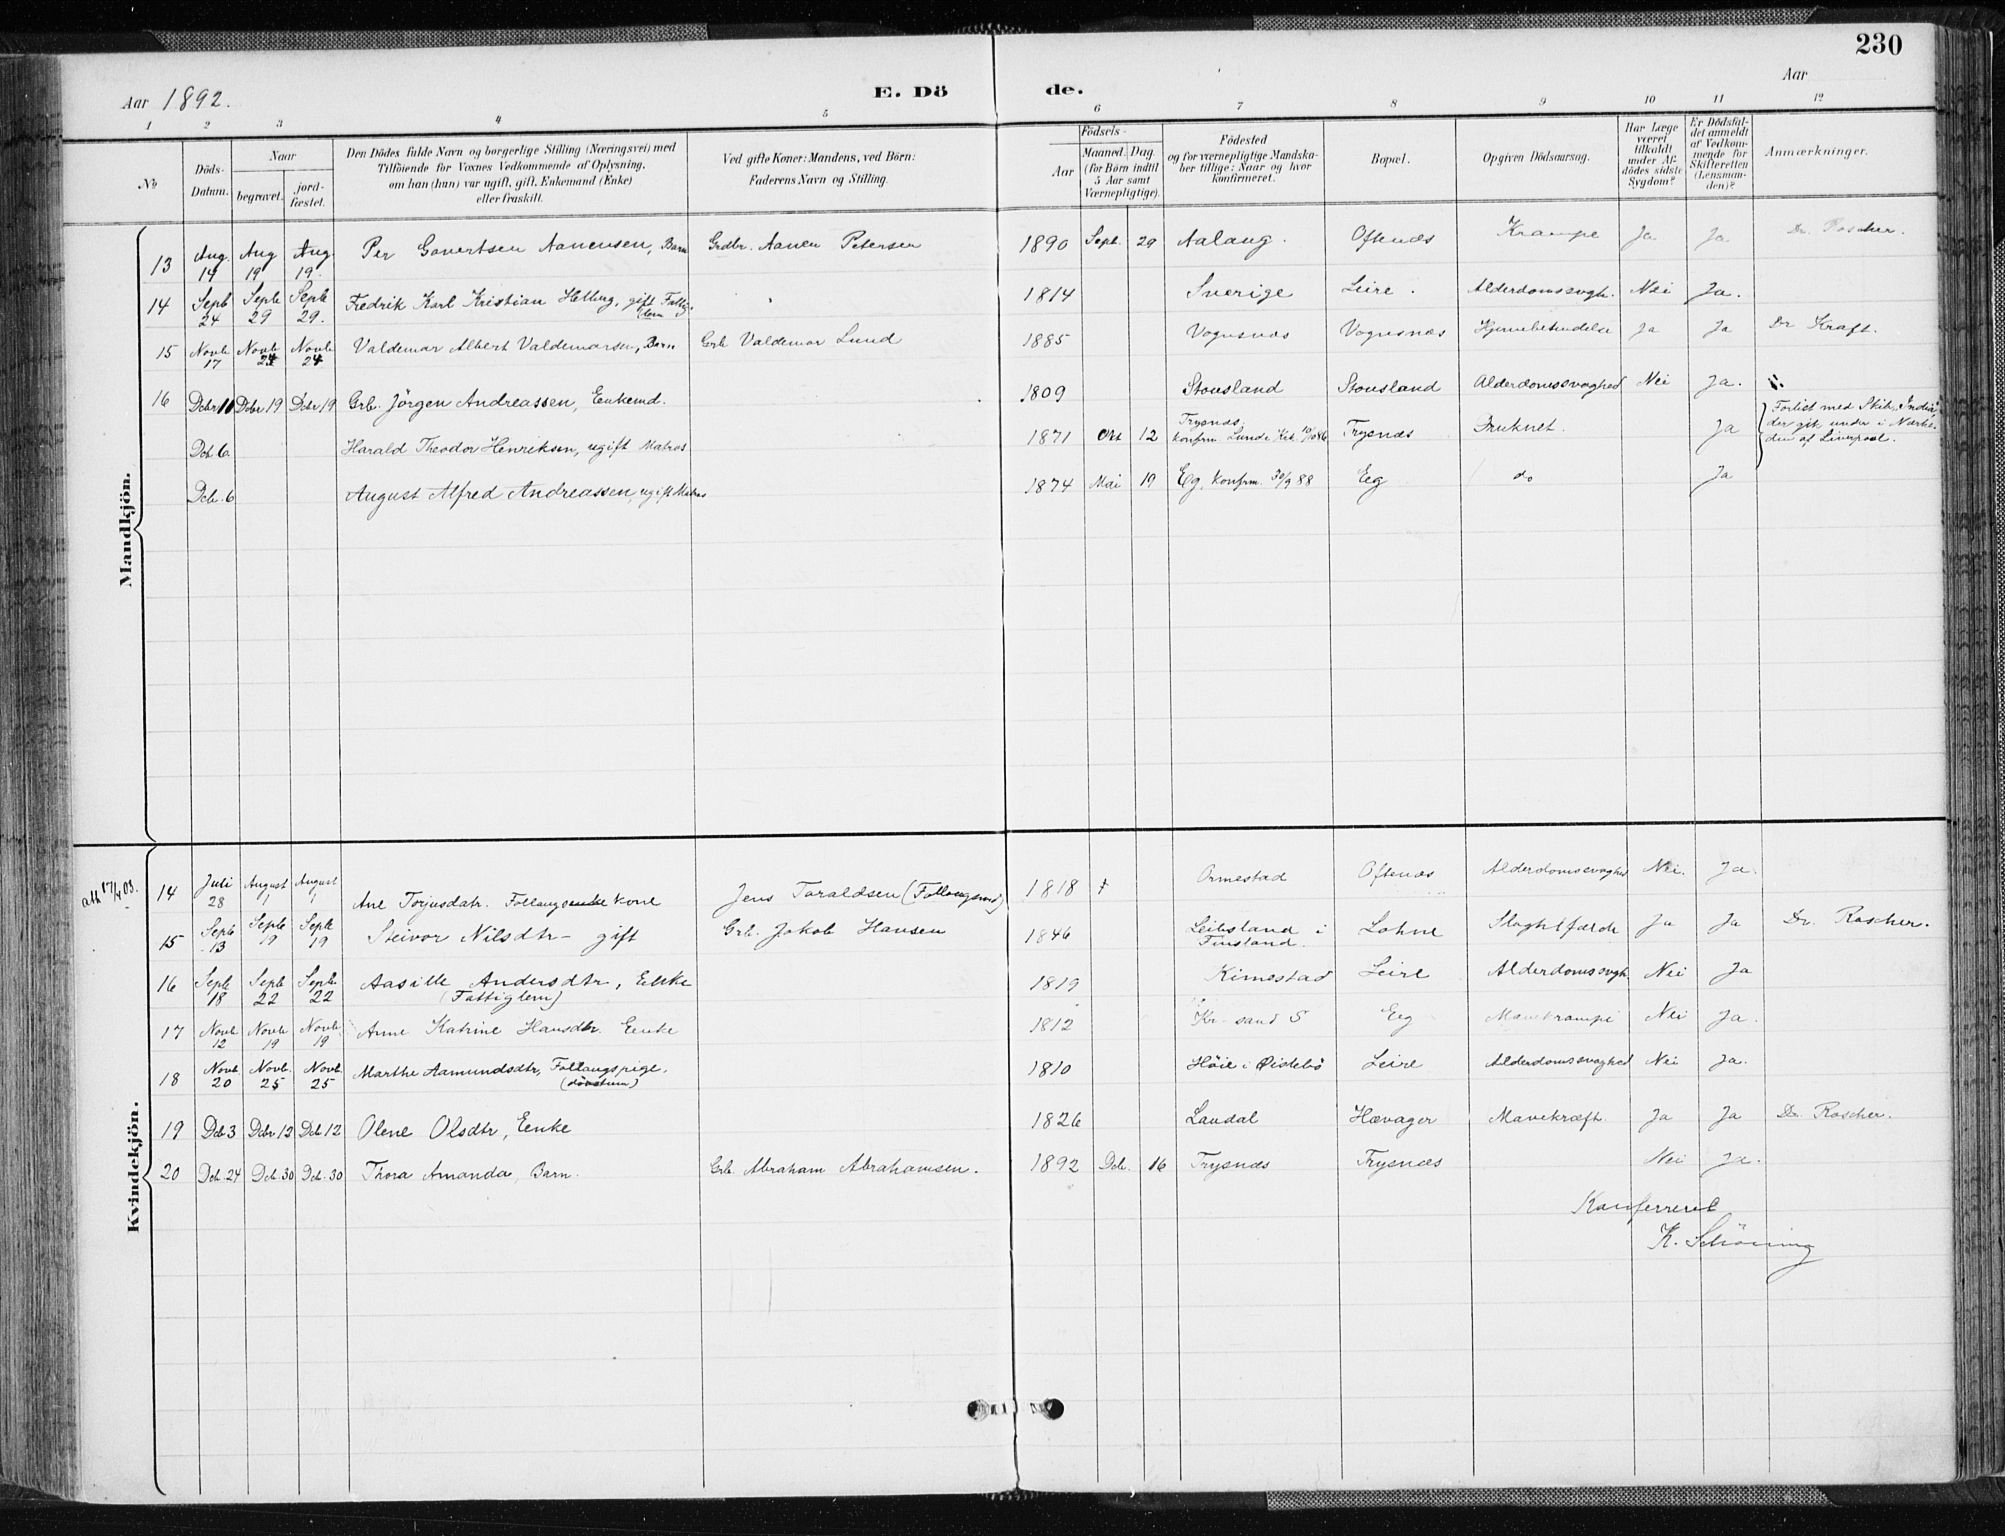 230
Aar 1892.
E. Dö de.
Aar
1 2 3 4 5 6 7 8 9 10 11 12
No
Döds-Datum.
Naar
begravet.
jord-fæstet.
Den Dödes fulde Navn og borgerlige Stilling (Næringsvei) med
Tilföiende for Voxnes Vedkommende af Oplysning,
om han (hun) var ugift, gift, Enkemand (Enke)
eller fraskilt.
Ved gifte Koner: Mandens, ved Börn:
Faderens Navn og Stilling.
Födsels-
Aar
Maaned. Dag.
(for Börn indtil
5 Aar samt
Værnepligtige).
Födested
og for værnepligtige Mandska-
ber tillige: Naar og hvor
konfirmeret.
Bopæl.
Opgiven Dödsaarsag.
Har Læge
været
tilkaldt
under Af-
dödes sidste
Sygdom?
Er Dödsfal-
det anmeldt
af Vedkom-
mende for
Skifteretten
(Lensman-
den)?
Anmærkninger.
Mandkjön.
13 Aug. 14 Aug 19 Aug. 19. Per Govertsen Aanensen, Barn Grdbr. Aanen Petersen 1890 Sept. 29 Aalaug. Oftenæs Krampe Ja Ja Dr. Roscher.
14 Septb 24 Septb 29 Septb 29. Fredrik Karl Kristian Hellberg, gift Fattig-lem 1814 Sverige Leire. Alderdomssvagh. Nei Ja.
15 Novb. 17 Novb. 24 Novb. 24 Valdemar Albert Valdemarsen, Barn Grb. Valdemar Lund 1885 Vognsnæs Vognsnæs Hjernebetændelse Ja Ja Dr Kraft.
16 Dcbr 10 Dcbr 19 Dcbr 19 Grb. Jörgen Andreassen, Enkemd. 1809 Stousland Stousland Alderdomssvaghed Nei Ja.
Dcb 6. Harald Theodor Henriksen, ugift Matros 1871 Okt 12 Trysnæs. konfrm. Lunde Kirk. 10/10 86 Trysnæs Druknet. Ja Forlist med Skib. „India“, der gik under i Nærhe-den af Liverpool.
Dcb. 6 August Alfred Andreassen, ugift Matros 1874 Mai 19 Eg, konfrm. 30/9 88 Eeg do Ja
Kvindekjön.
att 17/4 03.
14 Juli 28 August 1 August 1 Ane Torjusdatr. Follaugsenke kone Jens Taraldsen (Follaugsmd) 1818 Ormestad Oftenæs Alderdomssvaghed Nei. Ja.
15 Septb 13 Septb 19 Septb 19 Steivor Nilsdtr - gift Grb. Jakob Hansen 1846 Leibsland i Finsland. Lohne Slagtilfælde Ja Ja Dr. Roscher.
16 Septb 18 Septb 22 Septb. 22 Aasille Andersdtr, Enke (Fattiglem) 1819 Kimestad Leire Alderdomssvgh Nei Ja
17 Novb. 12 Novb. 19 Novb. 19 Anne Katrine Hansdtr. Enke 1812 Kr-sand S Eeg Mavekrampe Nei Ja.
18 Novb. 20 Novb. 25 Novb. 25 Marthe Aamundsdtr, Follaugspige. (dövstum) 1810 Höie i Öislebö Leire Alderdomssvaghed Nei Ja.
19 Dcb 3 Dcbr 12 Dcb 12 Olene Olsdtr, Enke 1826 Laudal Hævager Mavekræft. Ja Ja Dr. Roscher.
20 Dcb. 24 Dcb. 30 Dcb. 30 Thora Amanda, Barn. Grb. Abraham Abrahamsen. 1892 Dcb. 16 Trysnæs Trysnæs Nei Ja.
Konfereret
K. Schöning